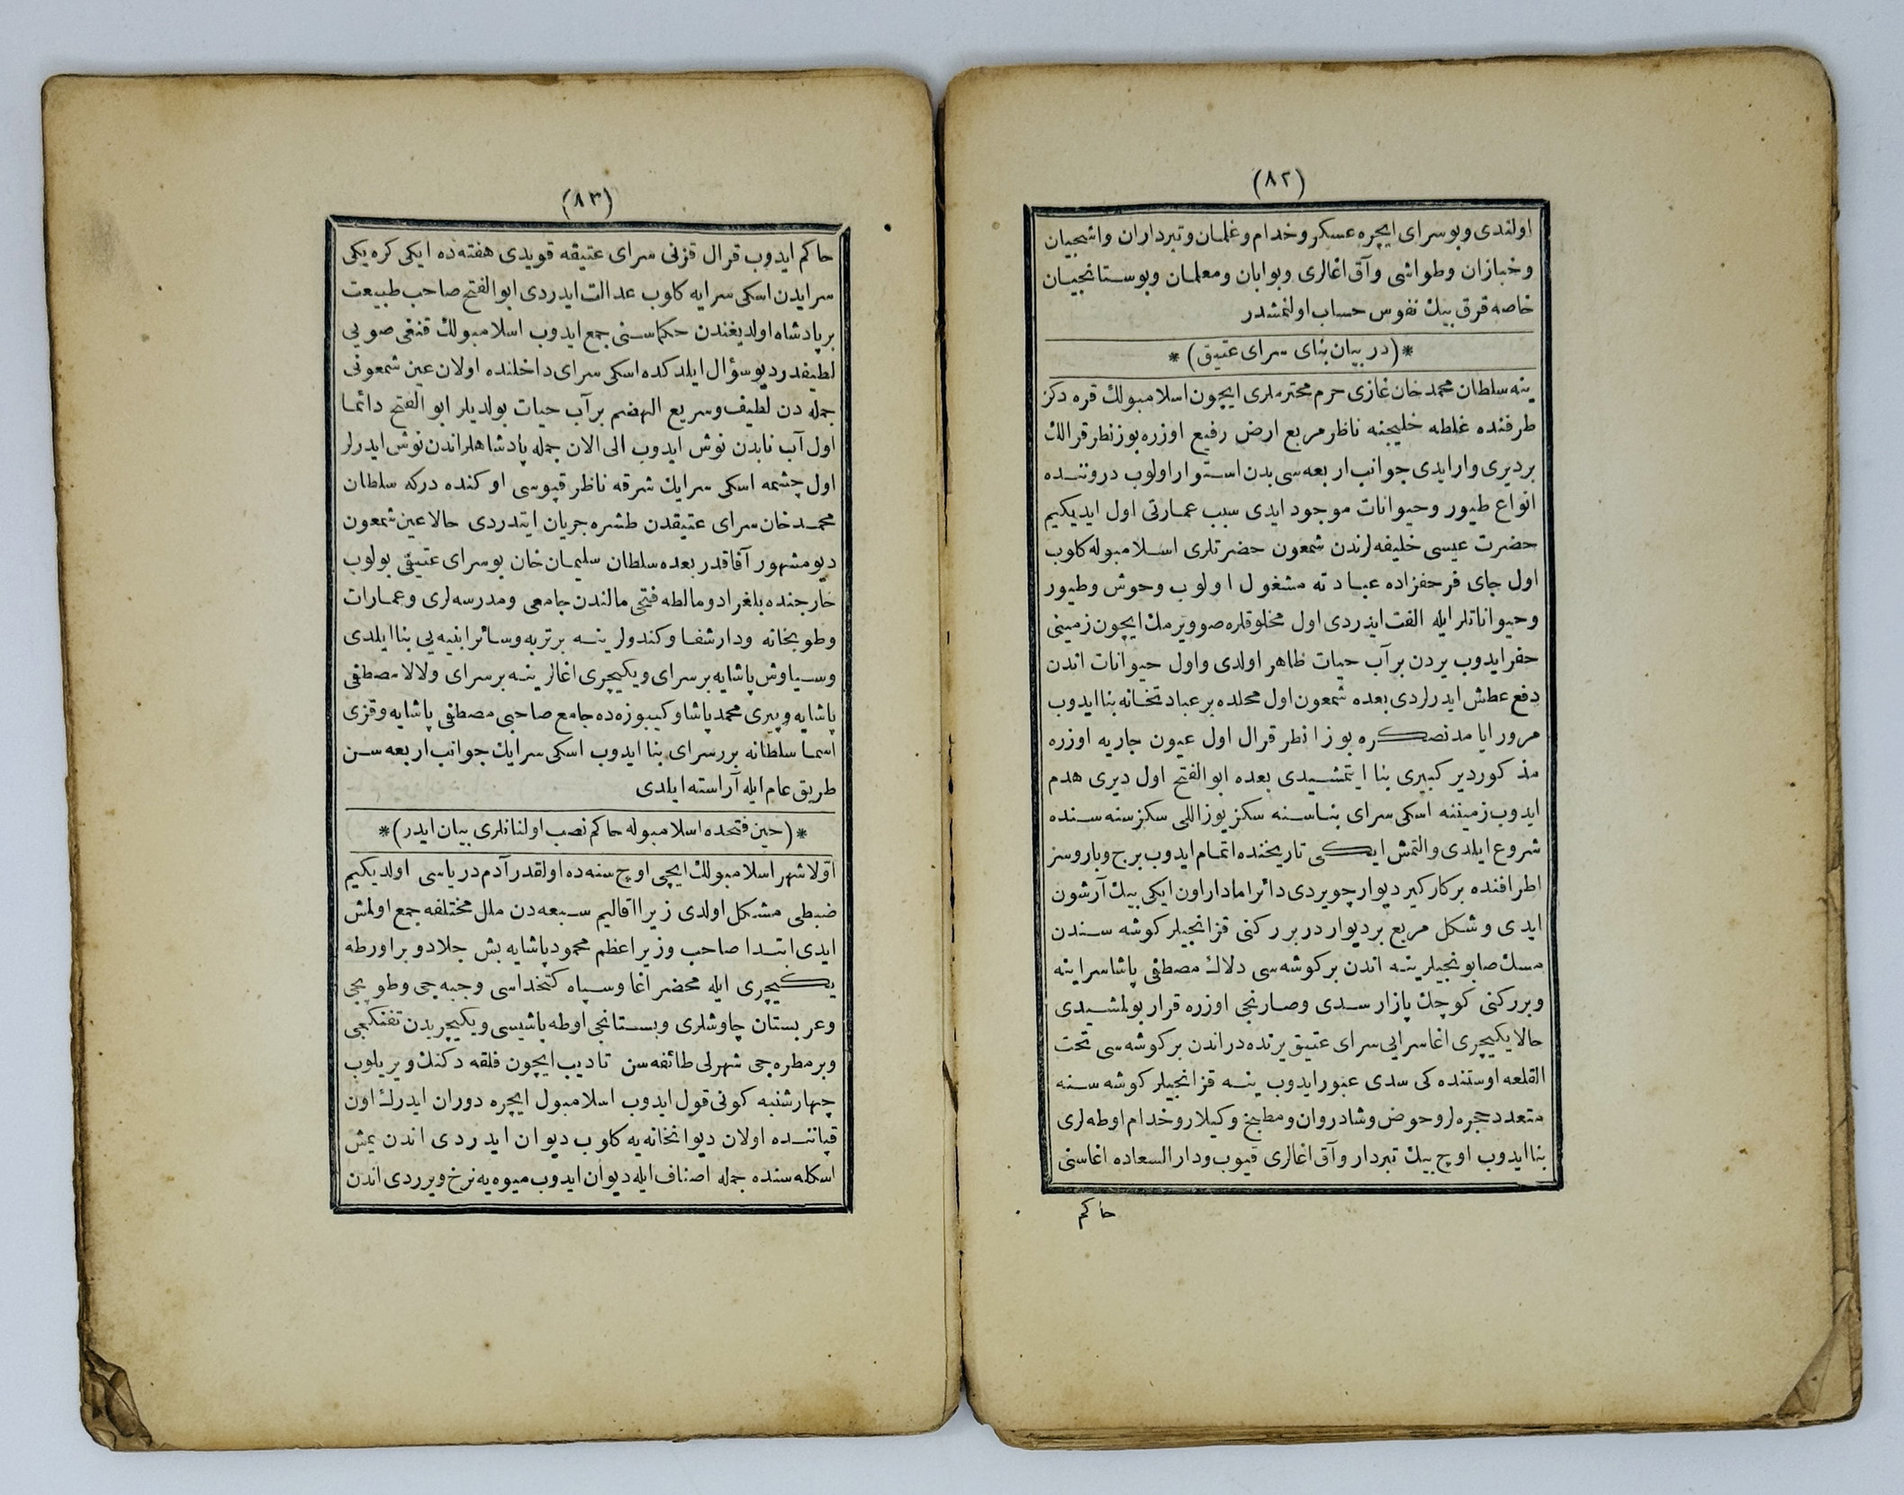 (٨٢)
اولندی و بو سرای ایچره عسکر و خدام و غلمان و تبرداران واشجیان
و خبازان و طواشی و آق اغالری و بوابان و معلمان و بوستانجیان
خاصه قرق بیك نفوس حساب اولنمشدر
*(در بیان بنای سرای عتیق)*
ینه سلطان محمد خان غازی حرم محترملری ایچون اسلامبولك قره دکز
طرفنده غلطه خلیجنه ناظر مربع ارض رفیع اوزره بوزنطر قرالك
بر دیری وار ایدی جوانب اربعه سی بدن استوار اولوب دروننده
انواع طیور و حیوانات موجود ایدی سبب عمارتی اول ایدیکیم
حضرت عیسی خلیفه لرندن شمعون حضرتلری اسلامبوله کلوب
اول جای فرحفزاده عبادته مشغول اولوب وحوش و طیور
و حیواناتلر ایله الفت ایدردی اول مخلوقلره صو ویرمك ایچون زمینی
حفر ایدوب یردن بر آب حیات ظاهر اولدی و اول حیوانات اندن
دفع عطش ایدرلردی بعده شمعون اول محلده بر عبادتخانه بنا ایدوب
مرور ایامدنصکره بوزانطر قرال اول عیون جاریه اوزره
مذکور دیر کبیری بنا ایتمشیدی بعده ابوالفتح اول دیری هدم
ایدوب زمیننه اسکی سرای بناسنه سکز یوز اللی سکز سنه سنده
شروع ایلدی و التمش ایکی تاریخنده اتمام ایدوب برج و باروسز
اطرافنده بر کارکیر دیوار چویردی دائرا مادار اون ایکی بیك آرشون
ایدی و شکل مربع بر دیواردر بر رکنی قزانجیلر کوشه سندن
مسك صابونجیلرینه اندن بر کوشه سی دلاك مصطفی پاشا سراینه
و بر رکنی کوچك پازار سدی و صارنجی اوزره قرار بولمشیدی
حالا یکیچری اغا سرایی سرای عتیق یرنده در اندن بر کوشه سی تحت
القلعه اوستنده کی سدی عبور ایدوب ینه قزانجیلر کوشه سنه
متعدد حجره لر و حوض و شادروان و مطبخ و کیلار و خدام اوطه لری
بنا ایدوب اوچ بیك تبردار و آق اغالری قیوب و دار السعاده اغاسنی
حاکم
(٨٣)
حاکم ایدوب قرال قزنی سرای عتیقه قویدی هفته ده ایکی کره یکی
سرایدن اسکی سرایه کلوب عدالت ایدردی ابوالفتح صاحب طبیعت
بر پادشاه اولدیغندن حکماسنی جمع ایدوب اسلامبولك قنغی صویی
لطیفدر دیو سؤال ایلدکده اسکی سرای داخلنده اولان عین شمعونی
جمله دن لطیف و سریع الهضم بر آب حیات بولدیلر ابوالفتح دائما
اول آب نابدن نوش ایدوب الی الان جمله پادشاهلر اندن نوش ایدرلر
اول چشمه اسکی سرایك شرقه ناظر قپوسی اوکنده درکه سلطان
محمد خان سرای عتیقدن طشره جریان ایتدردی حالا عین شمعون
دیو مشهور آفاقدر بعده سلطان سلیمان خان بو سرای عتیقی بولوب
خارجنده بلغراد و مالطه فتحی مالندن جامعی و مدرسه لری و عمارات
و طوبخانه و دارشفا و کندولرینه بر تربه و سائر ابنیه یی بنا ایلدی
و سیاوش پاشایه بر سرای و یکیچری اغالرینه بر سرای و لالا مصطفی
پاشایه و پیری محمد پاشا و کیبوزه ده جامع صاحبی مصطفی پاشایه و قزی
اسما سلطانه برر سرای بنا ایدوب اسکی سرایك جوانب اربعه سن
طریق عام ایله آراسته ایلدی
*(حین فتحده اسلامبوله حاکم نصب اولنانلری بیان ایدر)*
اولا شهر اسلامبولك ایچی اوچ سنه ده اولقدر آدم دریاسی اولدیکیم
ضبطی مشکل اولدی زیرا اقالیم سبعه دن ملل مختلفه جمع اولمش
ایدی ابتدا صاحب وزیر اعظم محمود پاشایه بش جلاد و بر اورطه
یکیچری ایله محضر اغا و سپاه کتخداسی و جبه جی و طوپچی
و عربستان چاوشلری و بستانجی اوطه باشیسی و یکیچریدن تفنکچی
و بر مطره جی شهرلی طائفه سن تادیب ایچون فلقه دکنك ویریلوب
چهارشنبه کونی قول ایدوب اسلامبول ایچره دوران ایدرك اون
قپاننده اولان دیوانخانه یه کلوب دیوان ایدردی اندن یمش
اسکله سنده جمله اصناف ایله دیوان ایدوب میوه یه نرخ ویرردی اندن